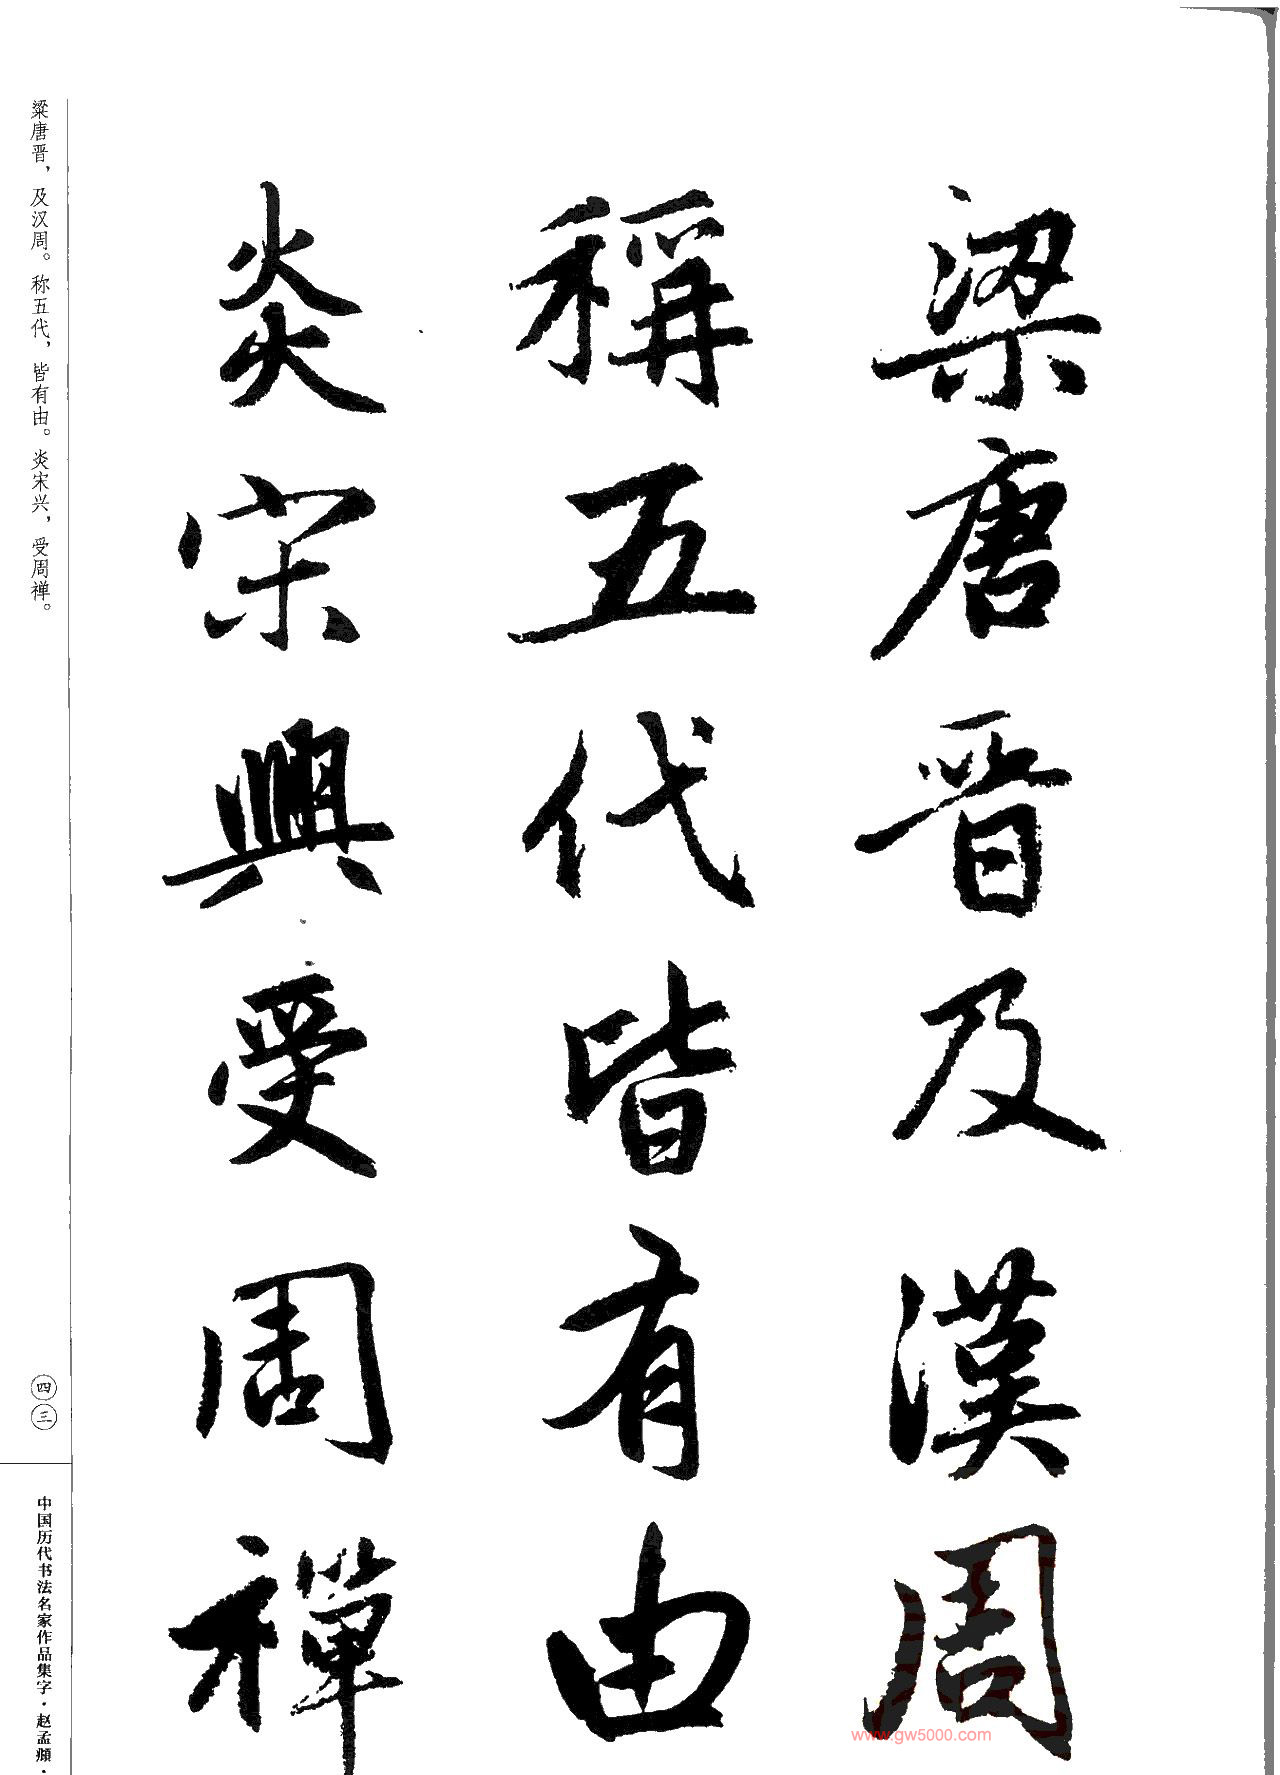 梁唐晋及漢周
稱五代皆有由
炎宋興受周禪
粱唐晋，及汉周。称五代，皆有由。炎宋兴，受周禅。
四三
中国历代书法名家作品集字·赵孟頫·
www.gw5000.com